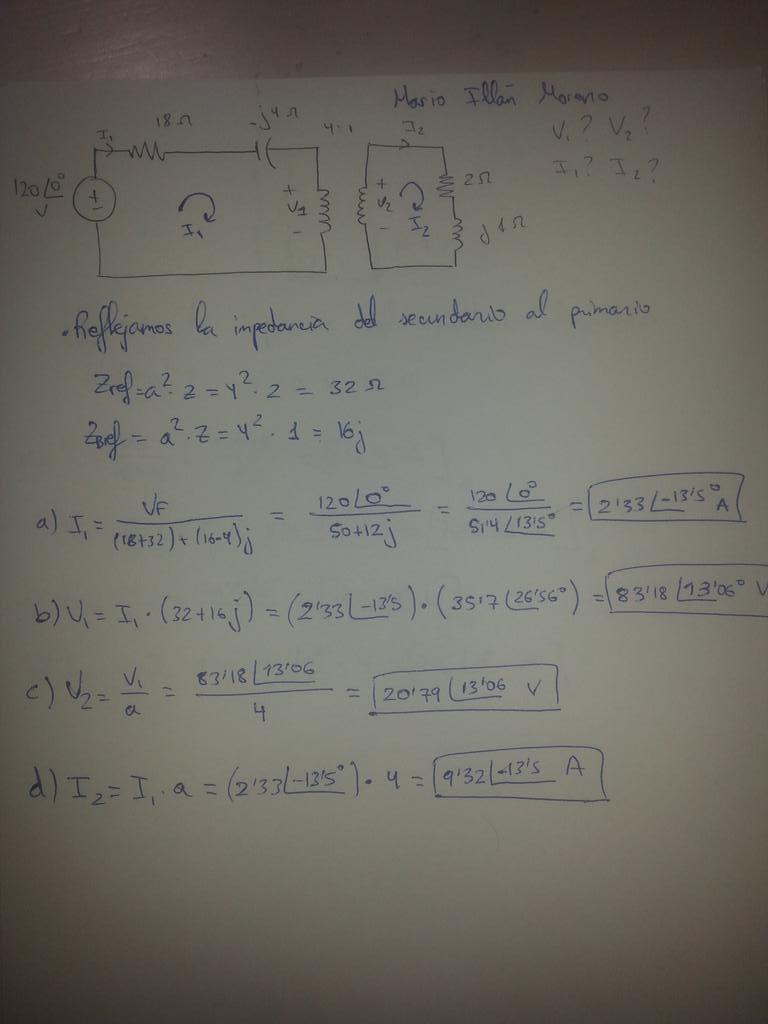 Mario Illán Moreno
18Ω
-j4Ω
4:1
I1
I2
V1? V2?
I1? I2?
120∠0° V
+
V1
-
I1
+
V2
-
I2
2Ω
j1Ω
·Reflejamos la impedancia del secundario al primario
Zref = a²·z = 4²·2 = 32Ω
= a²·Z = 4²·1 = 16j
a) I1 = VF / ((18+32)+(16-4)j) = 120∠0° / 50+12j = 120∠0° / 51'4∠13'5° = 2'33∠-13'5° A
b) V1 = I1·(32+16j) = (2'33∠-13'5)·(35'7∠26'56°) = 83'18∠13'06° V
c) V2 = V1/a = 83'18∠13'06 / 4 = 20'79∠13'06 V
d) I2 = I1·a = (2'33∠-13'5°)·4 = 9'32∠-13'5 A